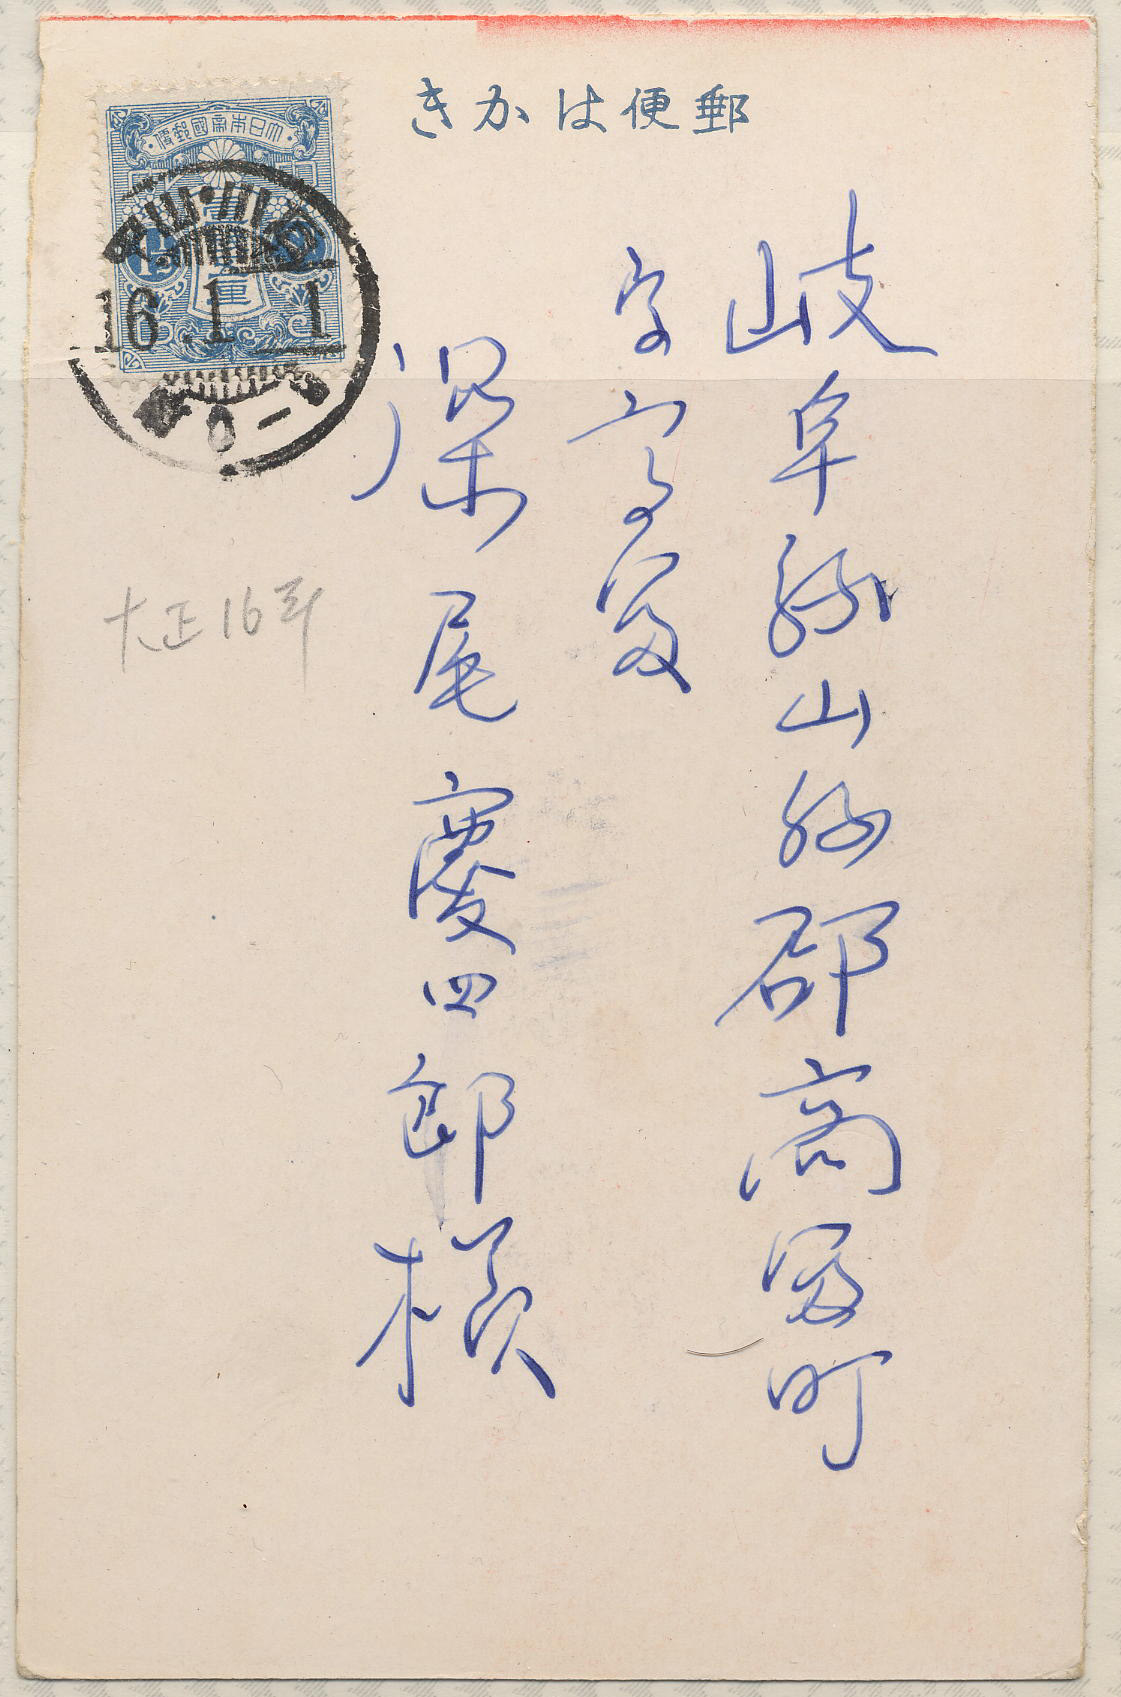 郵便はかき
大日本帝國郵便
1½
1½
16.1.1
0-
岐阜縣山縣郡高富町
字高富
梁尾慶四郎様
大正16年